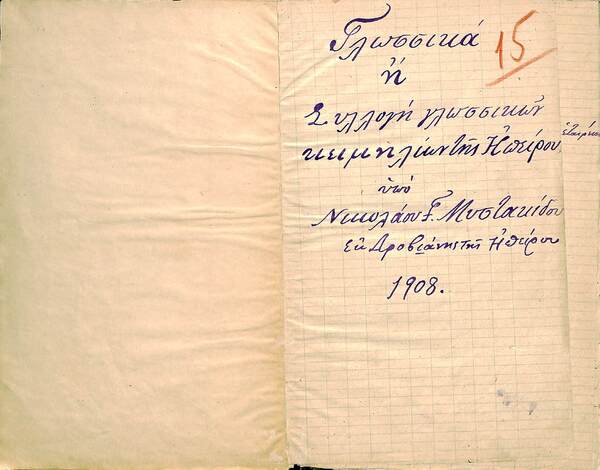 Γλωσσικά
15
ἤ
Συλλογή γλωσσικῶν
κειμηλίων τῆς Ἠπείρου
ὑπό
Νικολάου Γ. Μυστακίδου
ἐκ Δροβιάνης τῆς Ἠπείρου
1908.